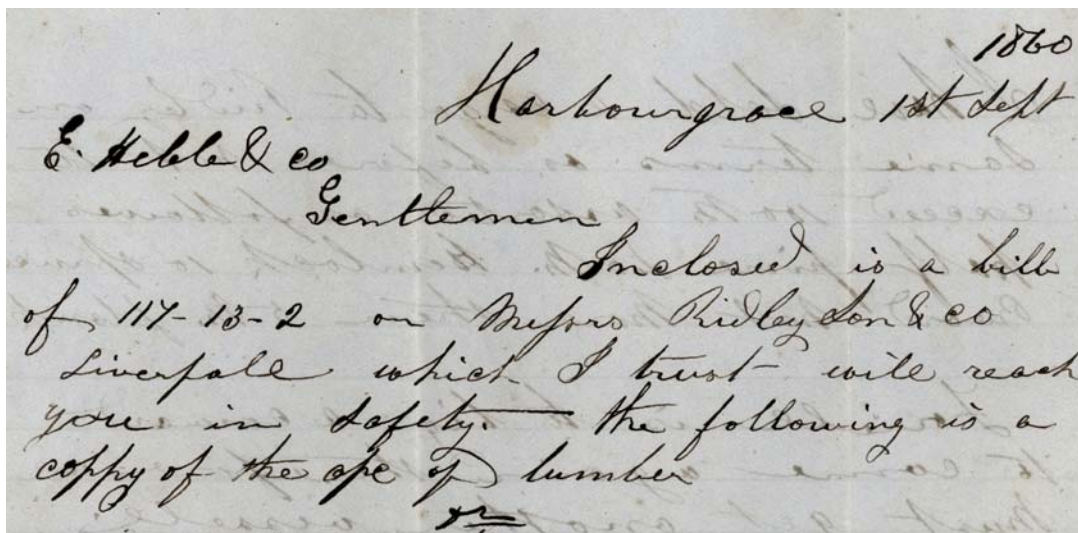 1860
Harbourgrace 1st Sept
E. Hebble & co
Gentlemen
Inclosed is a bill
of 117-13-2 on Messrs Ridley Son & co
Liverpall which I trust will reach
you in safety. the following is a
coppy of the of lumber